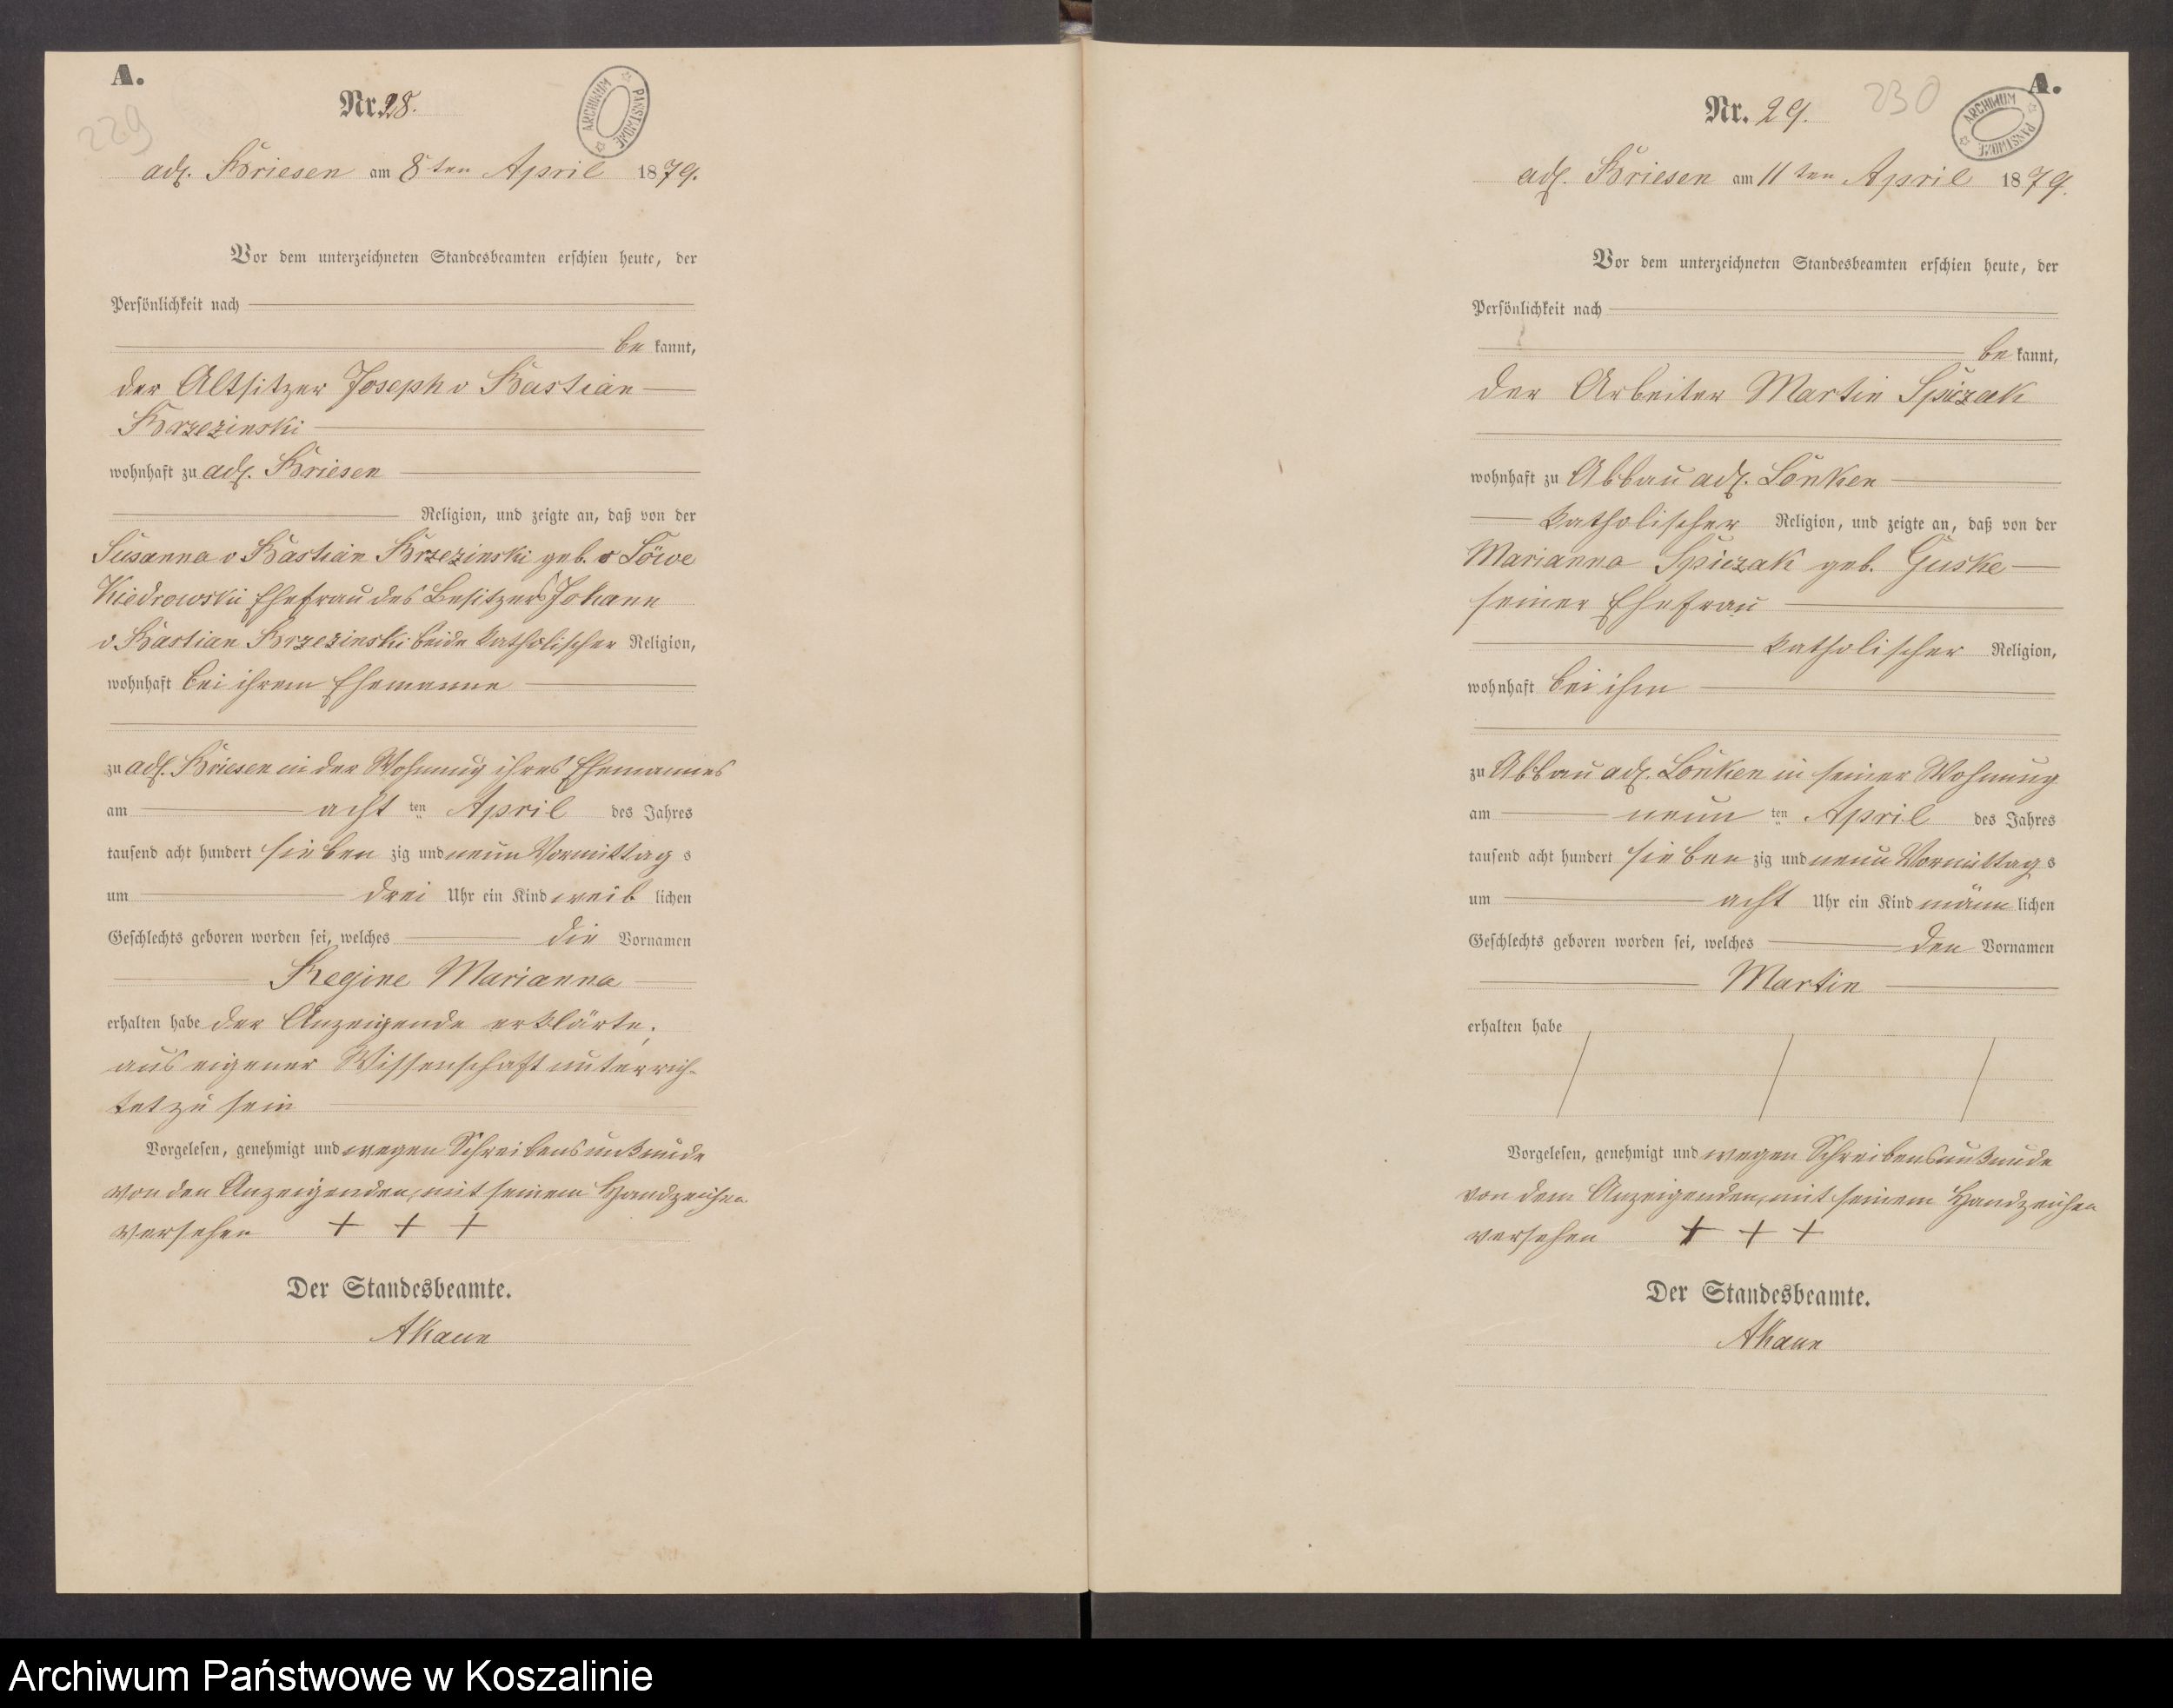 A.
229
Nr. 28.
ARCHIWUM PAŃSTWOWE
adl. Briesen am 8ten April 1879.
Vor dem unterzeichneten Standesbeamten erschien heute, der
Persönlichkeit nach
be kannt,
der Altsitzer Joseph v Bastian
Brzezinski
wohnhaft zu adl. Briesen
Religion, und zeigte an, daß von der
Susanna v Bastian Brzezinski geb. v Löwe
Kiedrowski Ehefrau des Besitzers Johann
v Bastian Brzezinski beide katholischer Religion,
wohnhaft bei ihrem Ehemanne
zu adl. Briesen in der Wohnung ihres Ehemannes
am acht ten April des Jahres
tausend acht hundert sieben zig und neun Vormittag s
um drei Uhr ein Kind weib lichen
Geschlechts geboren worden sei, welches die Vornamen
Regine Marianna
erhalten habe der Anzeigende erklärte,
aus eigener Wissenschaft unterrich-
tet zu sein
Vorgelesen, genehmigt und wegen Schreibensunkunde
von den Anzeigenden, mit seinem Handzeichen
versehen + + +
Der Standesbeamte.
AKaun
A.
230
Nr. 29.
ARCHIWUM PAŃSTWOWE
adl. Briesen am 11ten April 1879.
Vor dem unterzeichneten Standesbeamten erschien heute, der
Persönlichkeit nach
be kannt,
der Arbeiter Martin Spiczak
wohnhaft zu Abbau adl. Lonken
katholischer Religion, und zeigte an, daß von der
Marianna Spiczak geb. Guske
seiner Ehefrau
katholischer Religion,
wohnhaft bei ihm
zu Abbau adl. Lonken in seiner Wohnung
am neun ten April des Jahres
tausend acht hundert sieben zig und neun Vormittag s
um acht Uhr ein Kind männ lichen
Geschlechts geboren worden sei, welches den Vornamen
Martin
erhalten habe
Vorgelesen, genehmigt und wegen Schreibensunkunde
von dem Anzeigenden, mit seinem Handzeichen
versehen + + +
Der Standesbeamte.
AKaun
Archiwum Państwowe w Koszalinie